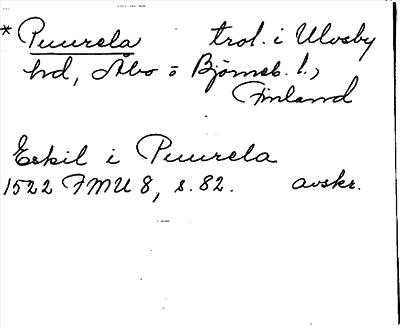 * Puurela trol. i Ulvsby
hd, Åbo o Björneb. l.,
Finland
Eskil i Puurela
1522 FMU 8, s. 82. avskr.